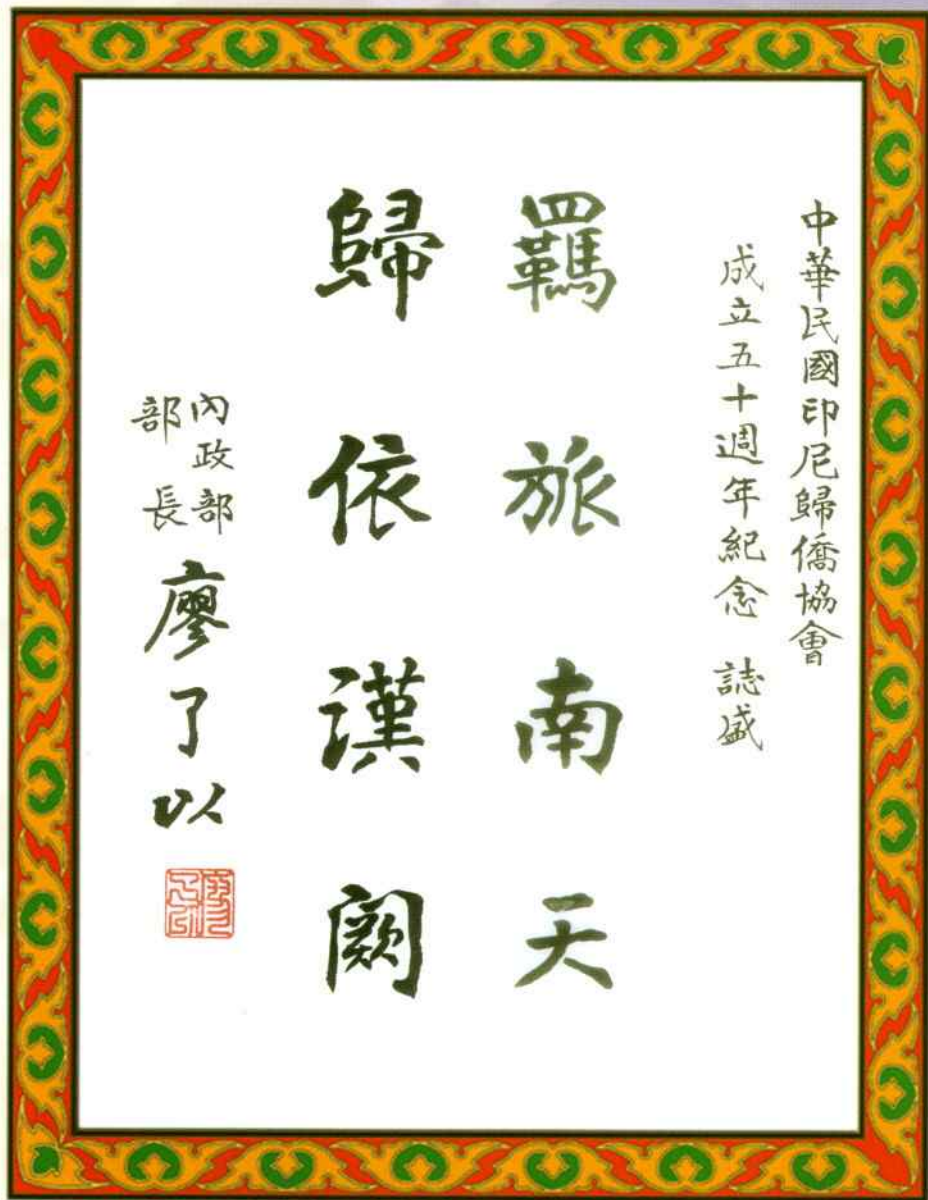 中華民國印尼歸僑協會
成立五十週年紀念 誌盛
羈旅南天
歸依漢闕
內政部
部長
廖了以